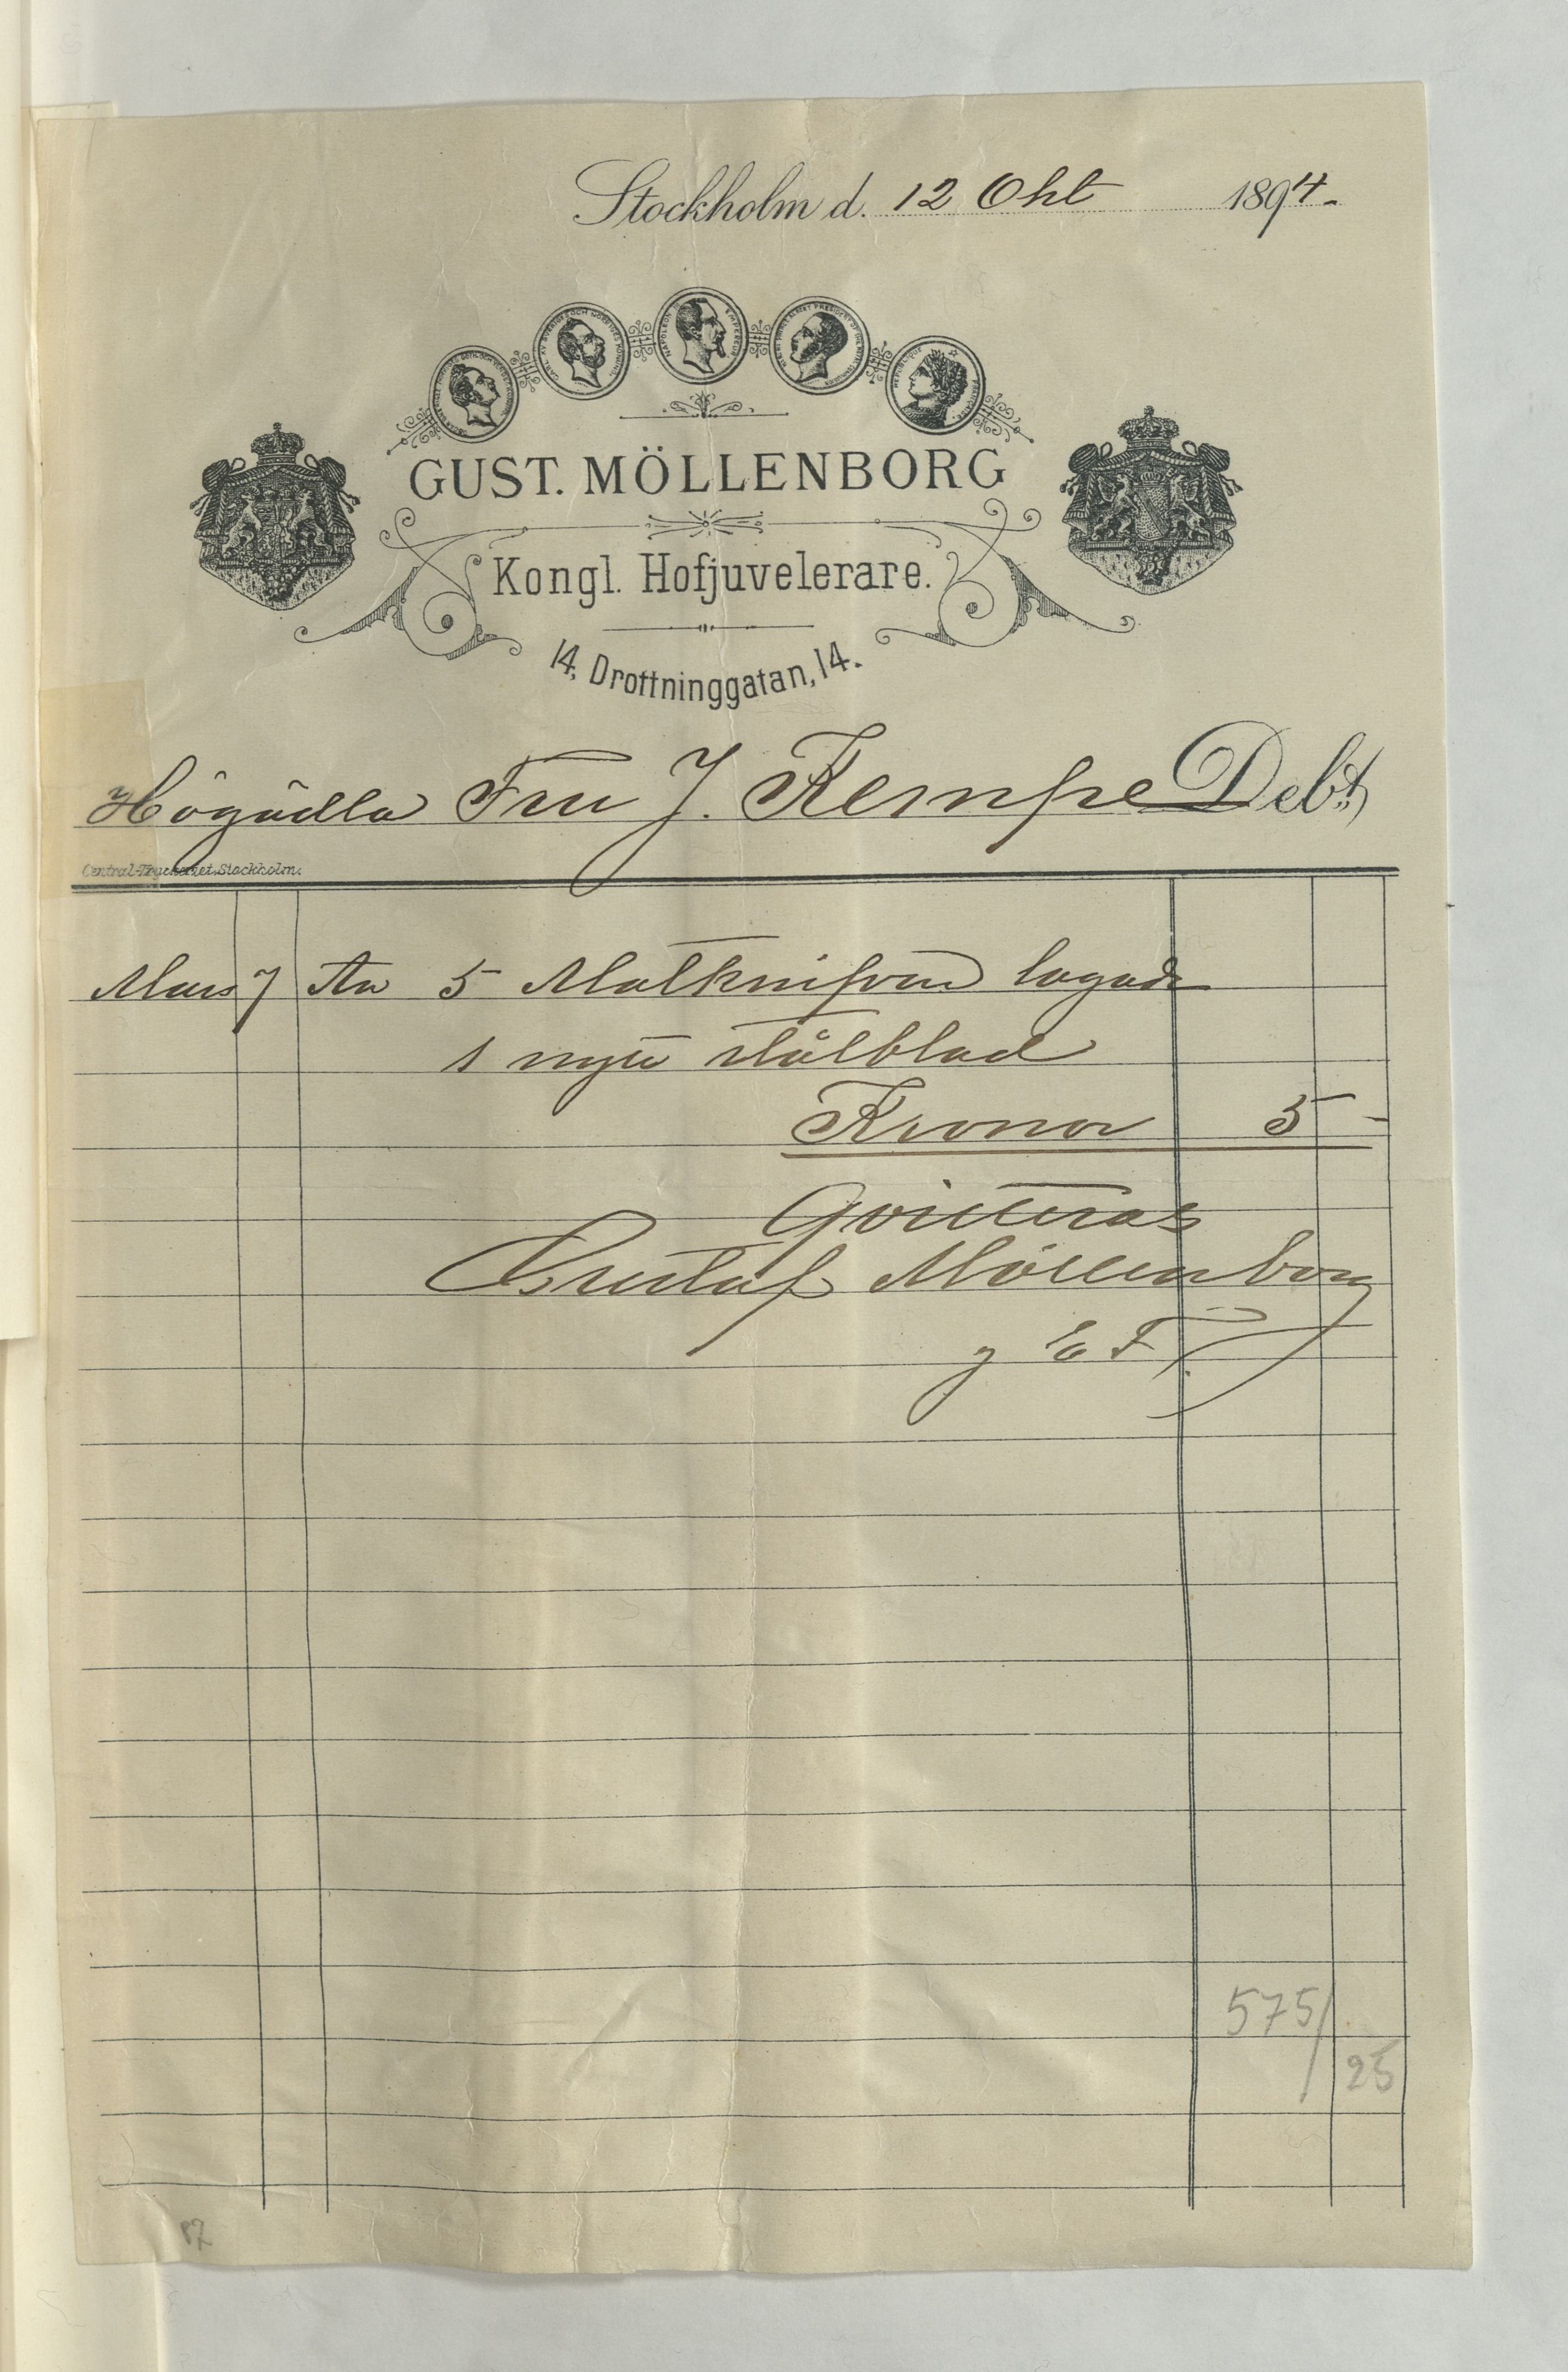 Stockholm d. 12 Okt 1894.
GUST. MÖLLENBORG
Kongl. Hofjuvelerare.
14, Drottninggatan, 14.
Högädla Fru J. Kempe Debt
Central-Tryckeriet, Stockholm.
Mars 7 An 5 Matknifvar lagade
1 nytt stålblad
Kronor 5 -
Qvitteras
Gustaf Möllenborg
g E F
575/
25